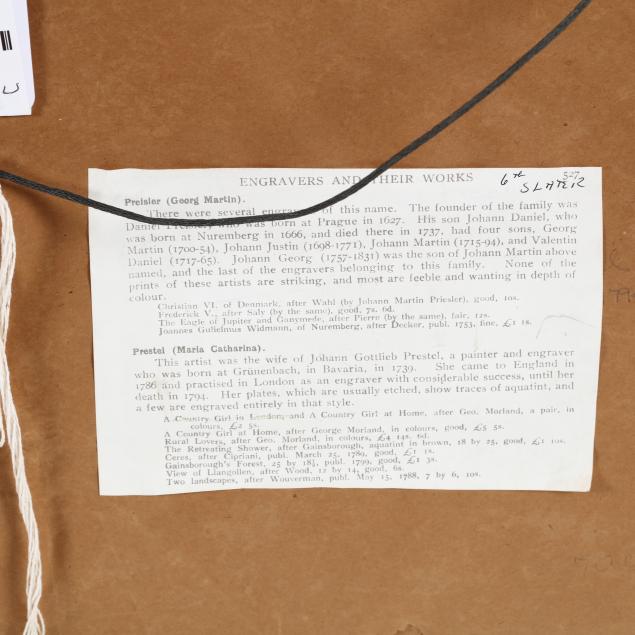 ENGRAVERS AND THEIR WORKS 527
6th SLATER
Preisler (Georg Martin).
There were several engravers of this name. The founder of the family was
Daniel Preisler, who was born at Prague in 1627. His son Johann Daniel, who
was born at Nuremberg in 1666, and died there in 1737, had four sons, Georg
Martin (1700-54), Johann Justin (1698-1771), Johann Martin (1715-94), and Valentin
Daniel (1717-65). Johann Georg (1757-1831) was the son of Johann Martin above
named, and the last of the engravers belonging to this family. None of the
prints of these artists are striking, and most are feeble and wanting in depth of
colour.
Christian VI. of Denmark, after Wahl (by Johann Martin Priesler), good, 10s.
Frederick V., after Saly (by the same), good, 7s. 6d.
The Eagle of Jupiter and Ganymede, after Pierre (by the same), fair, 12s.
Joannes Gulielmus Widmann, of Nuremberg, after Decker, publ. 1753, fine, £1 1s.
Prestel (Maria Catharina).
This artist was the wife of Johann Gottlieb Prestel, a painter and engraver
who was born at Grünenbach, in Bavaria, in 1739. She came to England in
1786 and practised in London as an engraver with considerable success, until her
death in 1794. Her plates, which are usually etched, show traces of aquatint, and
a few are engraved entirely in that style.
A Country Girl in London and A Country Girl at Home, after Geo. Morland, a pair, in
colours, £2 5s.
A Country Girl at Home, after George Morland, in colours, good, £5 5s.
Rural Lovers, after Geo. Morland, in colours, £4 14s. 6d.
The Retreating Shower, after Gainsborough, aquatint in brown, 18 by 25, good, £1 10s.
Ceres, after Cipriani, publ. March 25, 1789, good, £1 1s.
Gainsborough's Forest, 25 by 18¼, publ. 1799, good, £1 3s.
View of Llangollen, after Wood, 12 by 14, good, 6s.
Two landscapes, after Wouverman, publ. May 15, 1788, 7 by 6, 10s.